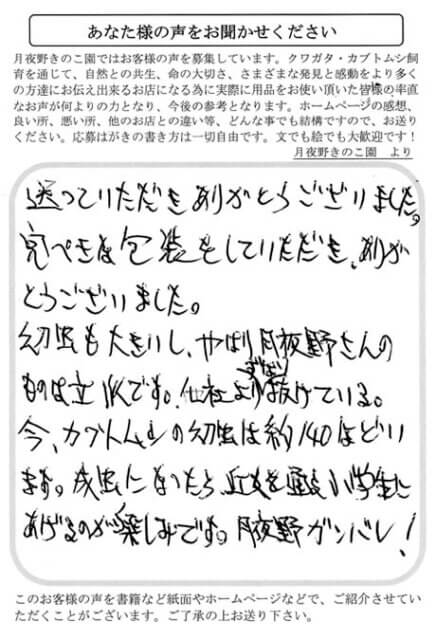 あなた様の声をお聞かせください
月夜野きのこ園ではお客様の声を募集しています。クワガタ・カブトムシ飼
育を通じて、自然との共生、命の大切さ、さまざまな発見と感動をより多く
の方達にお伝え出来るお店になる為に実際に用品をお使い頂いた皆様の率直
なお声が何よりの力となり、今後の参考となります。ホームページの感想、
良い所、悪い所、他のお店との違い等、どんな事でも結構ですので、お送り
ください。応募はがきの書き方は一切自由です。文でも絵でも大歓迎です！
月夜野きのこ園　より
送っていただきありがとうございました。
完ぺきな包装をしていただき、ありが
とうございました。
幼虫も大きいし、やはり月夜野さんの
ものは立派です。他社よりずばり抜けている。
今、カブトムシの幼虫は約140ほどい
ます。成虫になったら、近所を通る小学生に
あげるのが楽しみです。月夜野ガンバレ！
このお客様の声を書籍など紙面やホームページなどで、ご紹介させてい
ただくことがございます。ご了承の上お送り下さい。